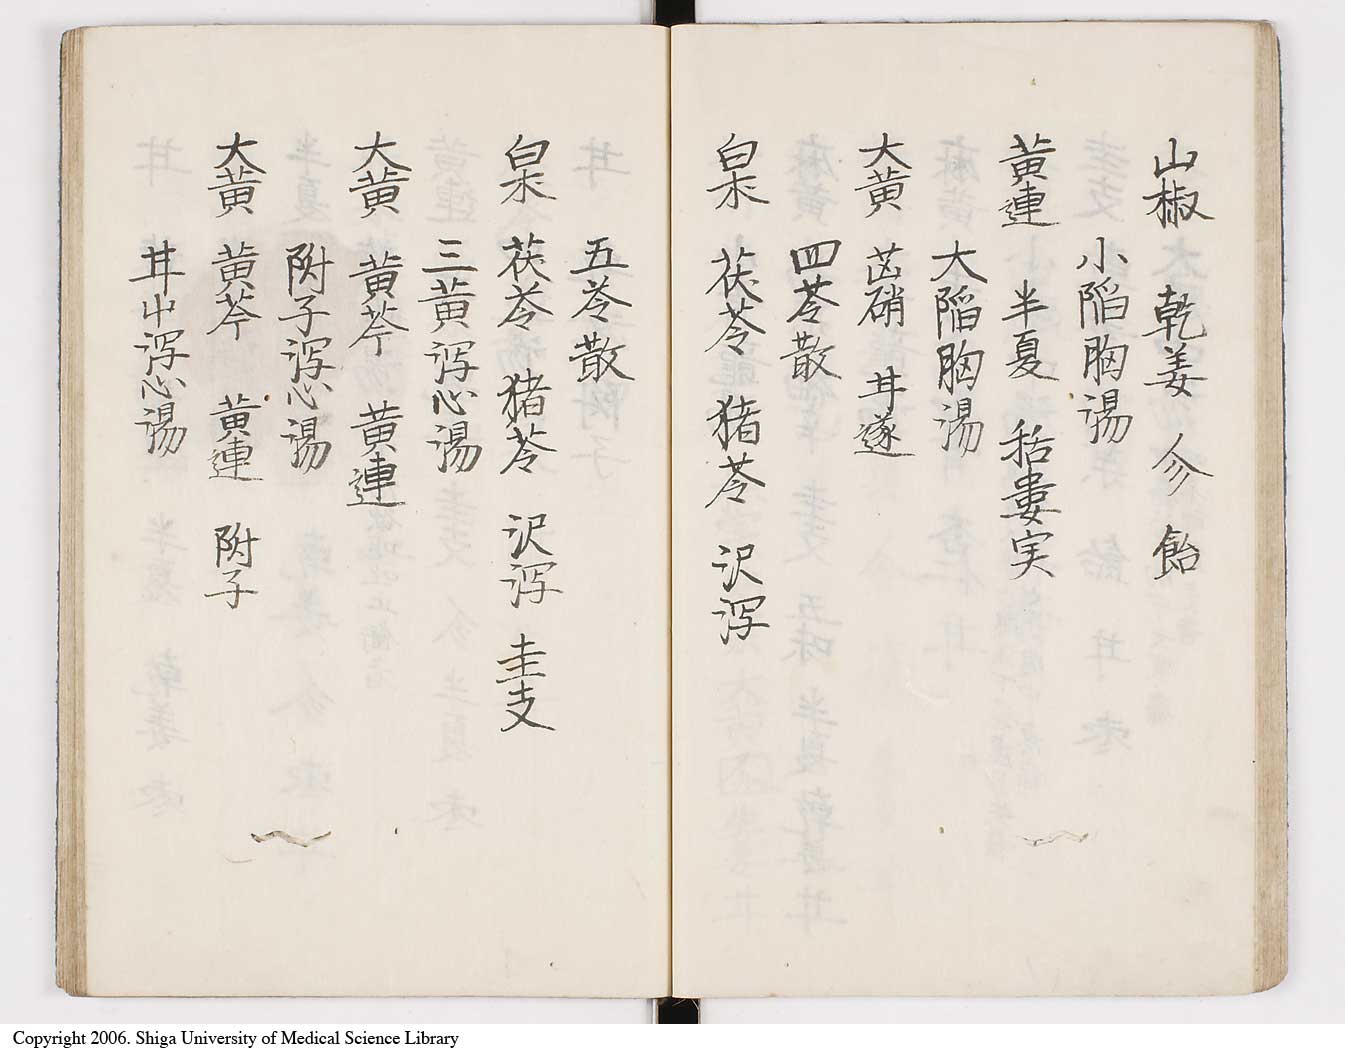 山椒 乾姜 㐱 飴
小陥胸湯
黄連 半夏 栝婁実
大陥胸湯
大黄 芒硝 甘遂
四苓散
白朮 茯苓 猪苓 沢泻
五苓散
白朮 茯苓 猪苓 沢泻 圭支
三黄泻心湯
大黄 黄芩 黄連
附子泻心湯
大黄 黄芩 黄連 附子
甘中泻心湯
Copyright 2006. Shiga University of Medical Science Library